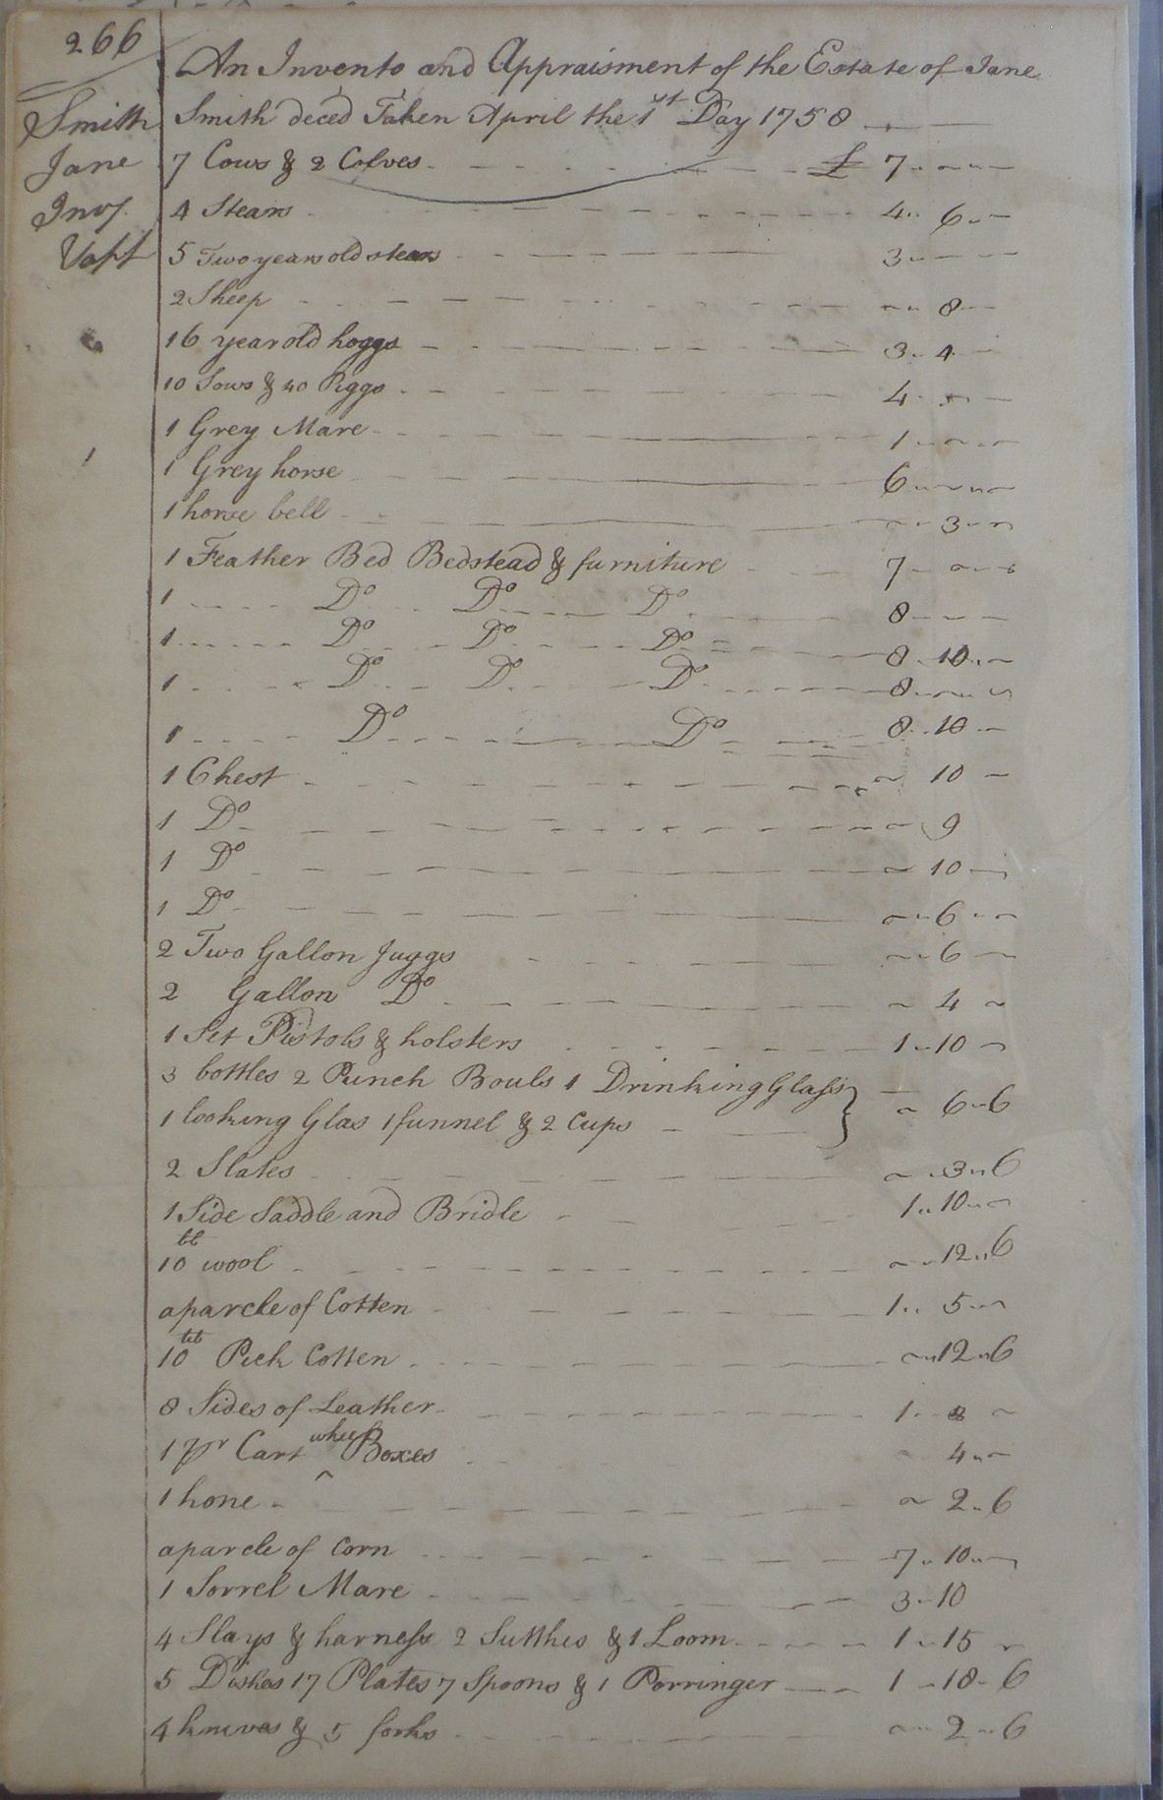 266
An Invento and Appraisment of the Estate of Jane
Smith Smith deced Taken April the 1st Day 1758
Jane 7 Cows & 2 Calves £ 7
Invy 4 Stears 4 6
5 Two years old stears 3
2 Sheep 8
16 year old hoggs 3 4
10 Sows & 40 Piggs 4
1 Grey Mare 1
1 Grey horse 6
1 horse bell 3
1 Feather Bed Bedstead & furniture 7
1 Do Do Do 8
1 Do Do Do 8 10
1 Do Do Do 8
1 Do Do 8 10
1 Chest 10
1 Do 9
1 Do 10
1 Do 6
2 Two Gallon Juggs 6
2 Gallon Do 4
1 Set Pistols & holsters 1 10
3 bottles 2 Punch Bouls 1 Drinking Glass
1 looking Glas 1 funnel & 2 Cups } 6 6
2 Slates 3 6
1 Side Saddle and Bridle 1 10
10 lb wool 12 6
a parcle of Cotten 1 5
10 lb Pick Cotten 12 6
8 Sides of Leather 1 8
1 pr Cart wheel Boxes 4
1 hone 2 6
a parcle of Corn 7 10
1 Sorrel Mare 3 10
4 Slays & harness 2 Sutthes & 1 Loom 1 15
5 Dishes 17 Plates 7 Spoons & 1 Porringer 1 18 6
4 knives & 5 forks 2 6